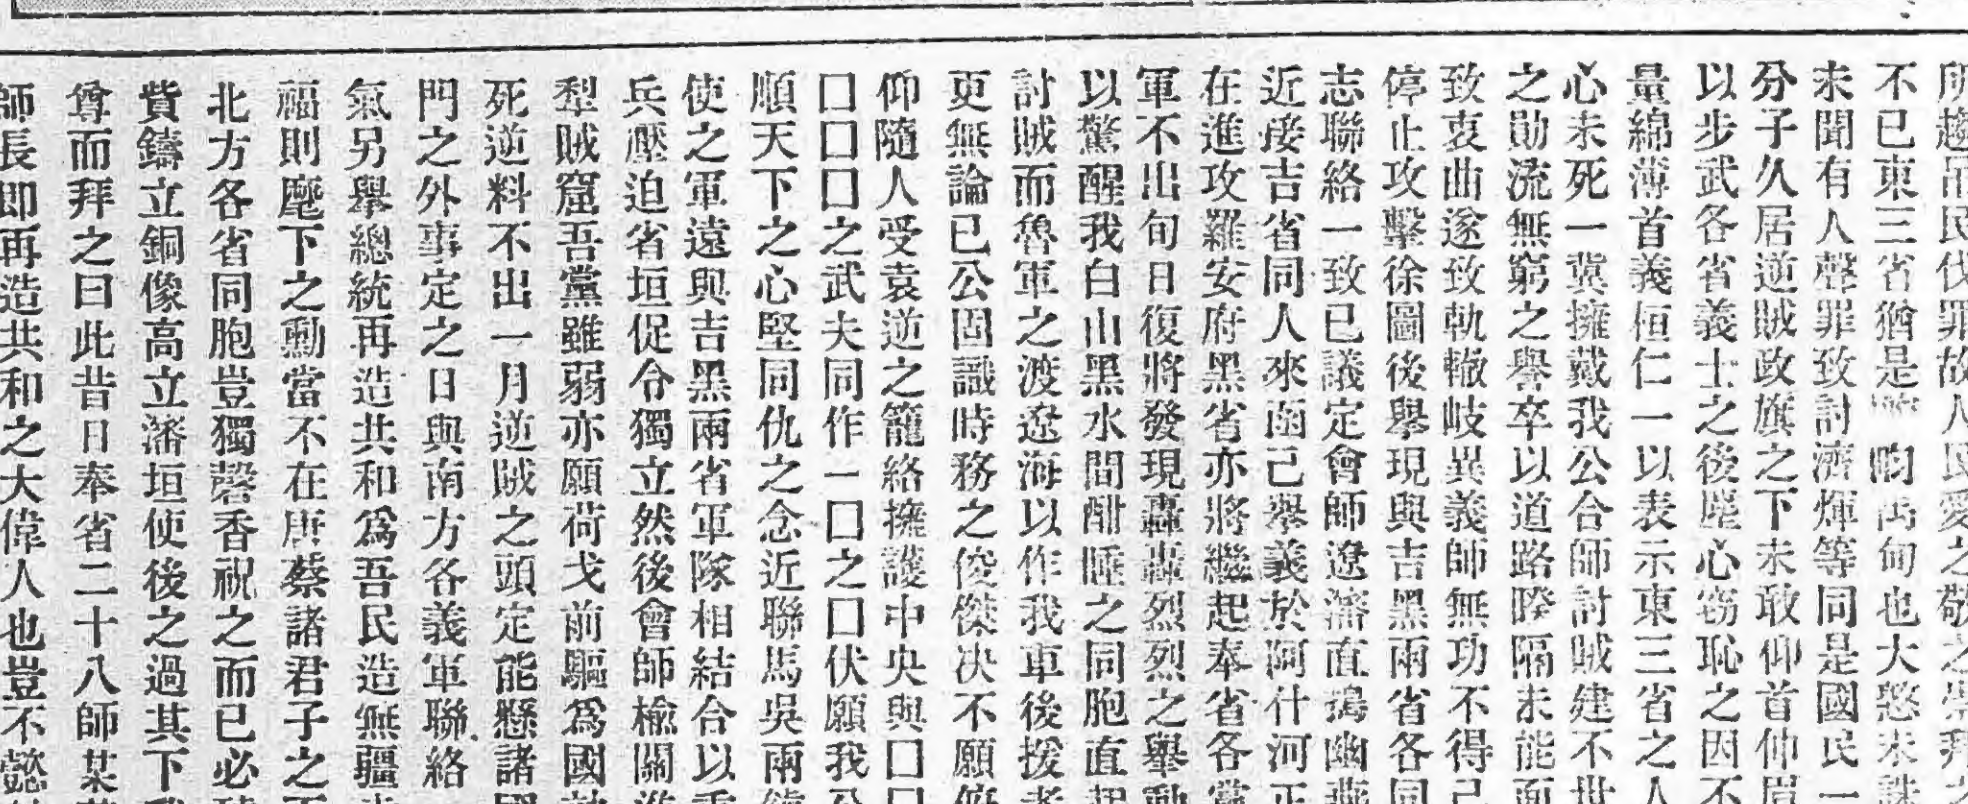 所趨吊民伐罪故人民愛之敬之崇拜之
不已東三省猶是 畇禹甸也大憝未誅
未聞有人聲罪致討濟煇等同是國民一
分子久居逆賊政旗之下未敢仰首伸眉
以步武各省義士之後塵心窃恥之因不
量綿薄首義恒仁一以表示東三省之人
心未死一冀擁戴我公合師討賊建不世
之勛流無窮之舉卒以道路睽隔未能面
致衷曲遂致軌轍岐異義師無功不得已
停止攻擊徐圖後舉現與吉黑兩省各同
志聯絡一致已議定會師遼瀋直搗幽燕
近接吉省同人來函己舉義於阿什河正
在進攻羅安府黑省亦將繼起奉省各黨
軍不出旬日復將發現轟轟烈烈之舉動
以驚醒我白山黑水間酣睡之同胞直起
討賊而魯軍之渡遼海以作我軍後援者
更無論已公固識時務之俊傑决不願俯
仰隨人受袁逆之籠絡擁護中央與囗囗
囗囗囗之武夫同作一囗之囗伏願我公
順天下之心堅同仇之念近聯馬吳兩
使之軍遠與吉黑兩省軍隊相結合以重
兵壓迫省垣促令獨立然後會師楡關進
犁賊窟吾黨雖弱亦願荷戈前驅爲國
死逆料不出一月逆賊之頭定能懸諸國
門之外事定之日與南方各義軍聯絡
氣另舉總統再造共和爲吾民造無疆
福則麾下之勳當不在唐蔡諸君子之下
北方各省同胞豈獨馨香祝之而已必
貲鑄立銅像高立瀋垣使後之過其下
尊而拜之曰此昔日奉省二十八師某
師長即再造共和之大偉人也豈不懿